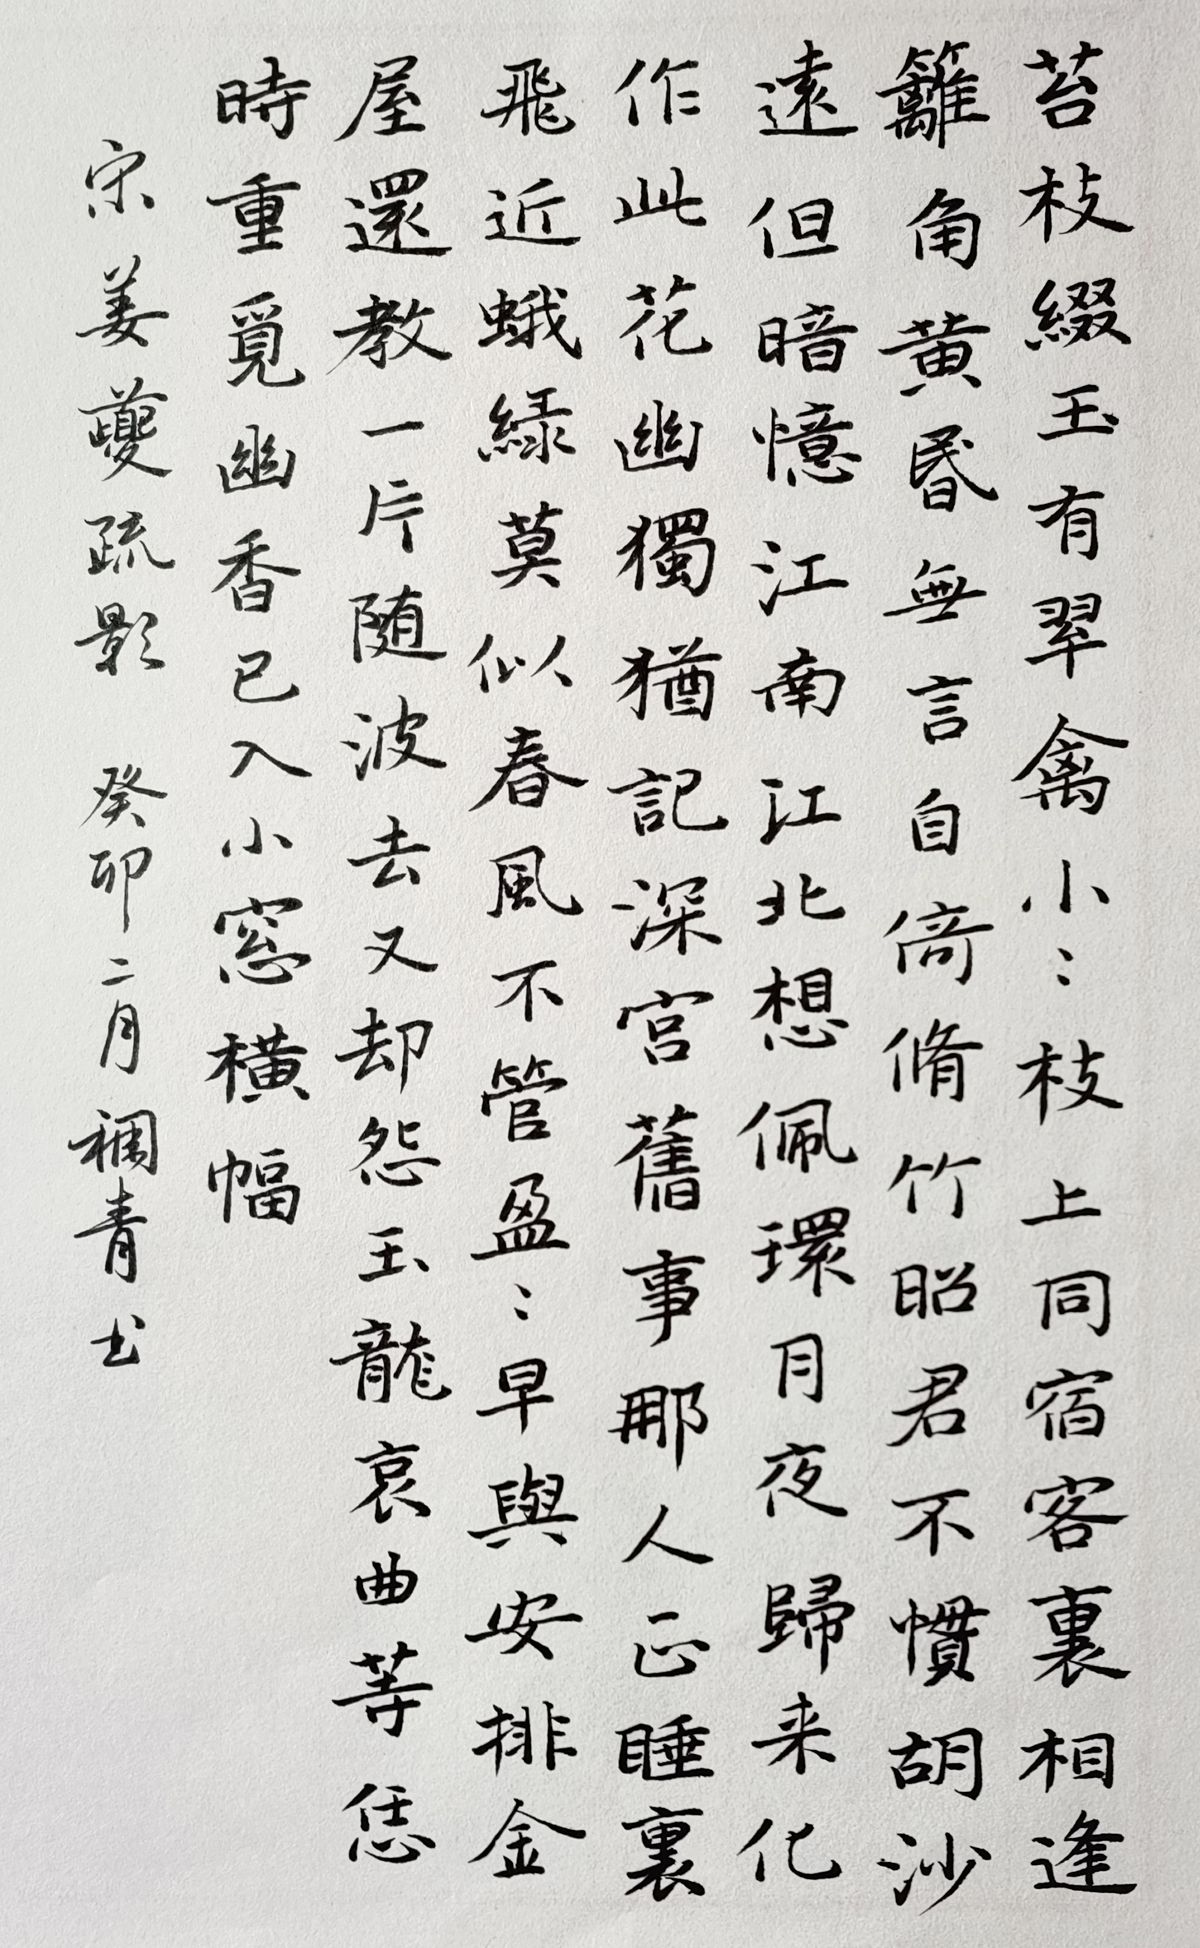 苔枝綴玉有翠禽小〻枝上同宿客裏相逢
籬角黄昏無言自倚脩竹昭君不慣胡沙
遠但暗憶江南江北想佩環月夜歸来化
作此花幽獨猶記深宫舊事那人正睡裏
飛近蛾緑莫似春風不管盈〻早與安排金
屋還教一片随波去又却怨玉龍哀曲等恁
時重覓幽香已入小窓横幅
宋姜夔疏影 癸卯二月襴青书